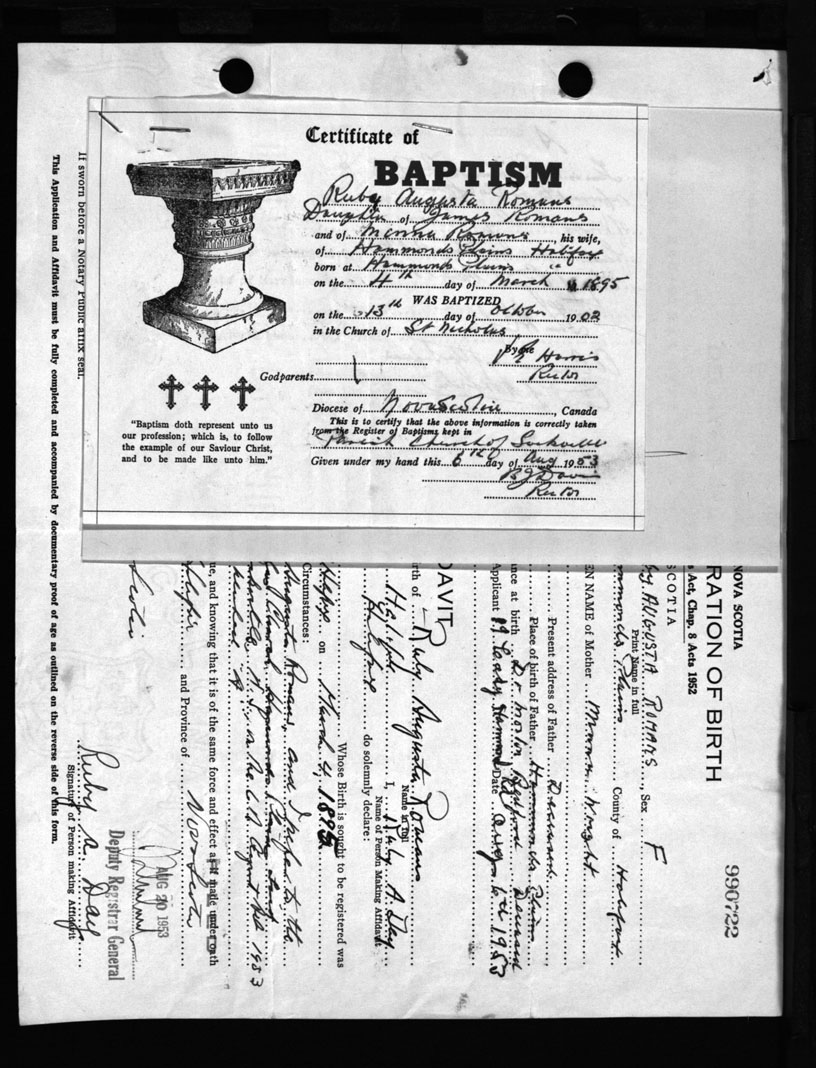 Certificate of
BAPTISM
Ruby Augusta Romans
Daughter of James Romans
and of Romans, his wife,
of Hammonds Plains Halifax
born at Hammonds Plains "
on the 4th day of March 1895
WAS BAPTIZED
on the 13th day of October 1903
in the Church of St Nicholas
By me Harris
Rector
Godparents
Diocese of Nova Scotia, Canada
This is to certify that the above information is correctly taken
from the Register of Baptisms kept in
Parish Church of Sackville
Given under my hand this 6th day of Aug 1953
Davis
Rector
"Baptism doth represent unto us
our profession; which is, to follow
the example of our Saviour Christ,
and to be made like unto him."
NOVA SCOTIA
RATION OF BIRTH
Act, Chap. 8 Acts 1952
SCOTIA
990722
by AUGUSTA ROMANS, Sex F
Print Name in full
mmonds Plains County of Halifax
EN NAME of Mother Wright
Present address of Father Deceased
Place of birth of Father Hammonds Plains
nce at birth Dr. Morton Bedford Deceased
Applicant Date Aug 6th 1953
DAVIT
rth of Ruby Augusta Romans
Name in full
Halifax I, Ruby A. Day
Name of Person Making Affidavit
Halifax do solemnly declare:
Whose Birth is sought to be registered was
on March 4, 1895
Circumstances:
Augusta Romans, and I refer to the
Church, Hammonds Plains
1953
me, and knowing that it is of the same force and effect as if made under oath
and Province of Nova Scotia
Scotia
AUG 20 1953
Deputy Registrar General
Ruby A. Day
Signature of Person making Affidavit
If sworn before a Notary Public affix seal.
This Application and Affidavit must be fully completed and accompanied by documentary proof of age as outlined on the reverse side of this form.